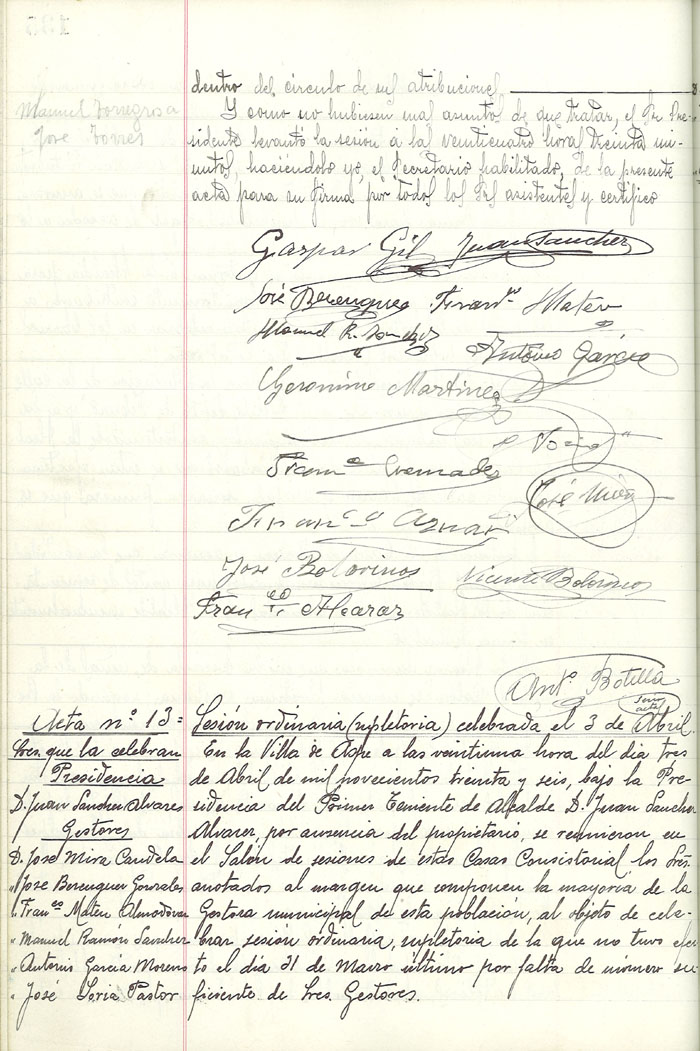 dentro del círculo de sus atribuciones.
Manuel Torregrosa
José Torres
Y como no hubiesen mas asuntos de que tratar, el Sr. Pre-
sidente levantó la sesión a las veinticuatro horas treinta mi-
nutos, haciéndolo yo, el Secretario habilitado, de la presente
acta para su firma por todos los Sres asistentes y certifico
Gaspar Gil Juan Sanchez
José Berenguer Franco Mateo
Manuel R. Sanchez
Antonio García
Geronimo Martinez
José Mira
Franco Cremades
Franco Aznar
José Botorinos Vicente Botorinos
Franco Alcaraz
Anto Botella
Srio acctal
Acta nº 13=
Sres. que la celebran
Presidencia
D. Juan Sanchez Alvares
Gestores
D. Jose Mira Candela
" Jose Berenguer Gonzales
" Franco Mateu Almodovar
" Manuel Ramón Sanchez
" Antonio García Moreno
" José Soria Pastor
Sesión ordinaria (supletoria) celebrada el 3 de Abril.
En la Villa de Aspe a las veintiuna hora del dia tres
de Abril de mil novecientos treinta y seis, bajo la Pre-
sidencia del Primer Teniente de Alcalde D. Juan Sanchez
Alvarez, por ausencia del propietario, se reunieron en
el Salón de sesiones de estas Casas Consistorial los Sres.
anotados al margen que componen la mayoria de la
Gestora municipal de esta población, al objeto de cele-
brar sesión ordinaria, supletoria de la que no tuvo efec-
to el dia 31 de Marzo último por falta de número su
ficiente de Sres. Gestores.